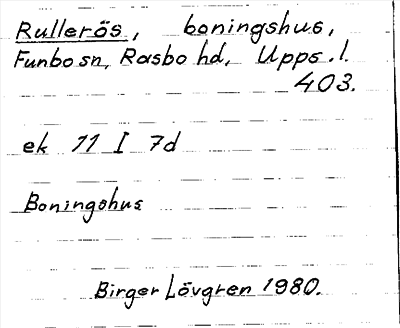 Rullerös, boningshus,
Funbo sn, Rasbo hd, Upps. l.
403.
ek 11 I 7d
Boningshus
Birger Lövgren 1980.